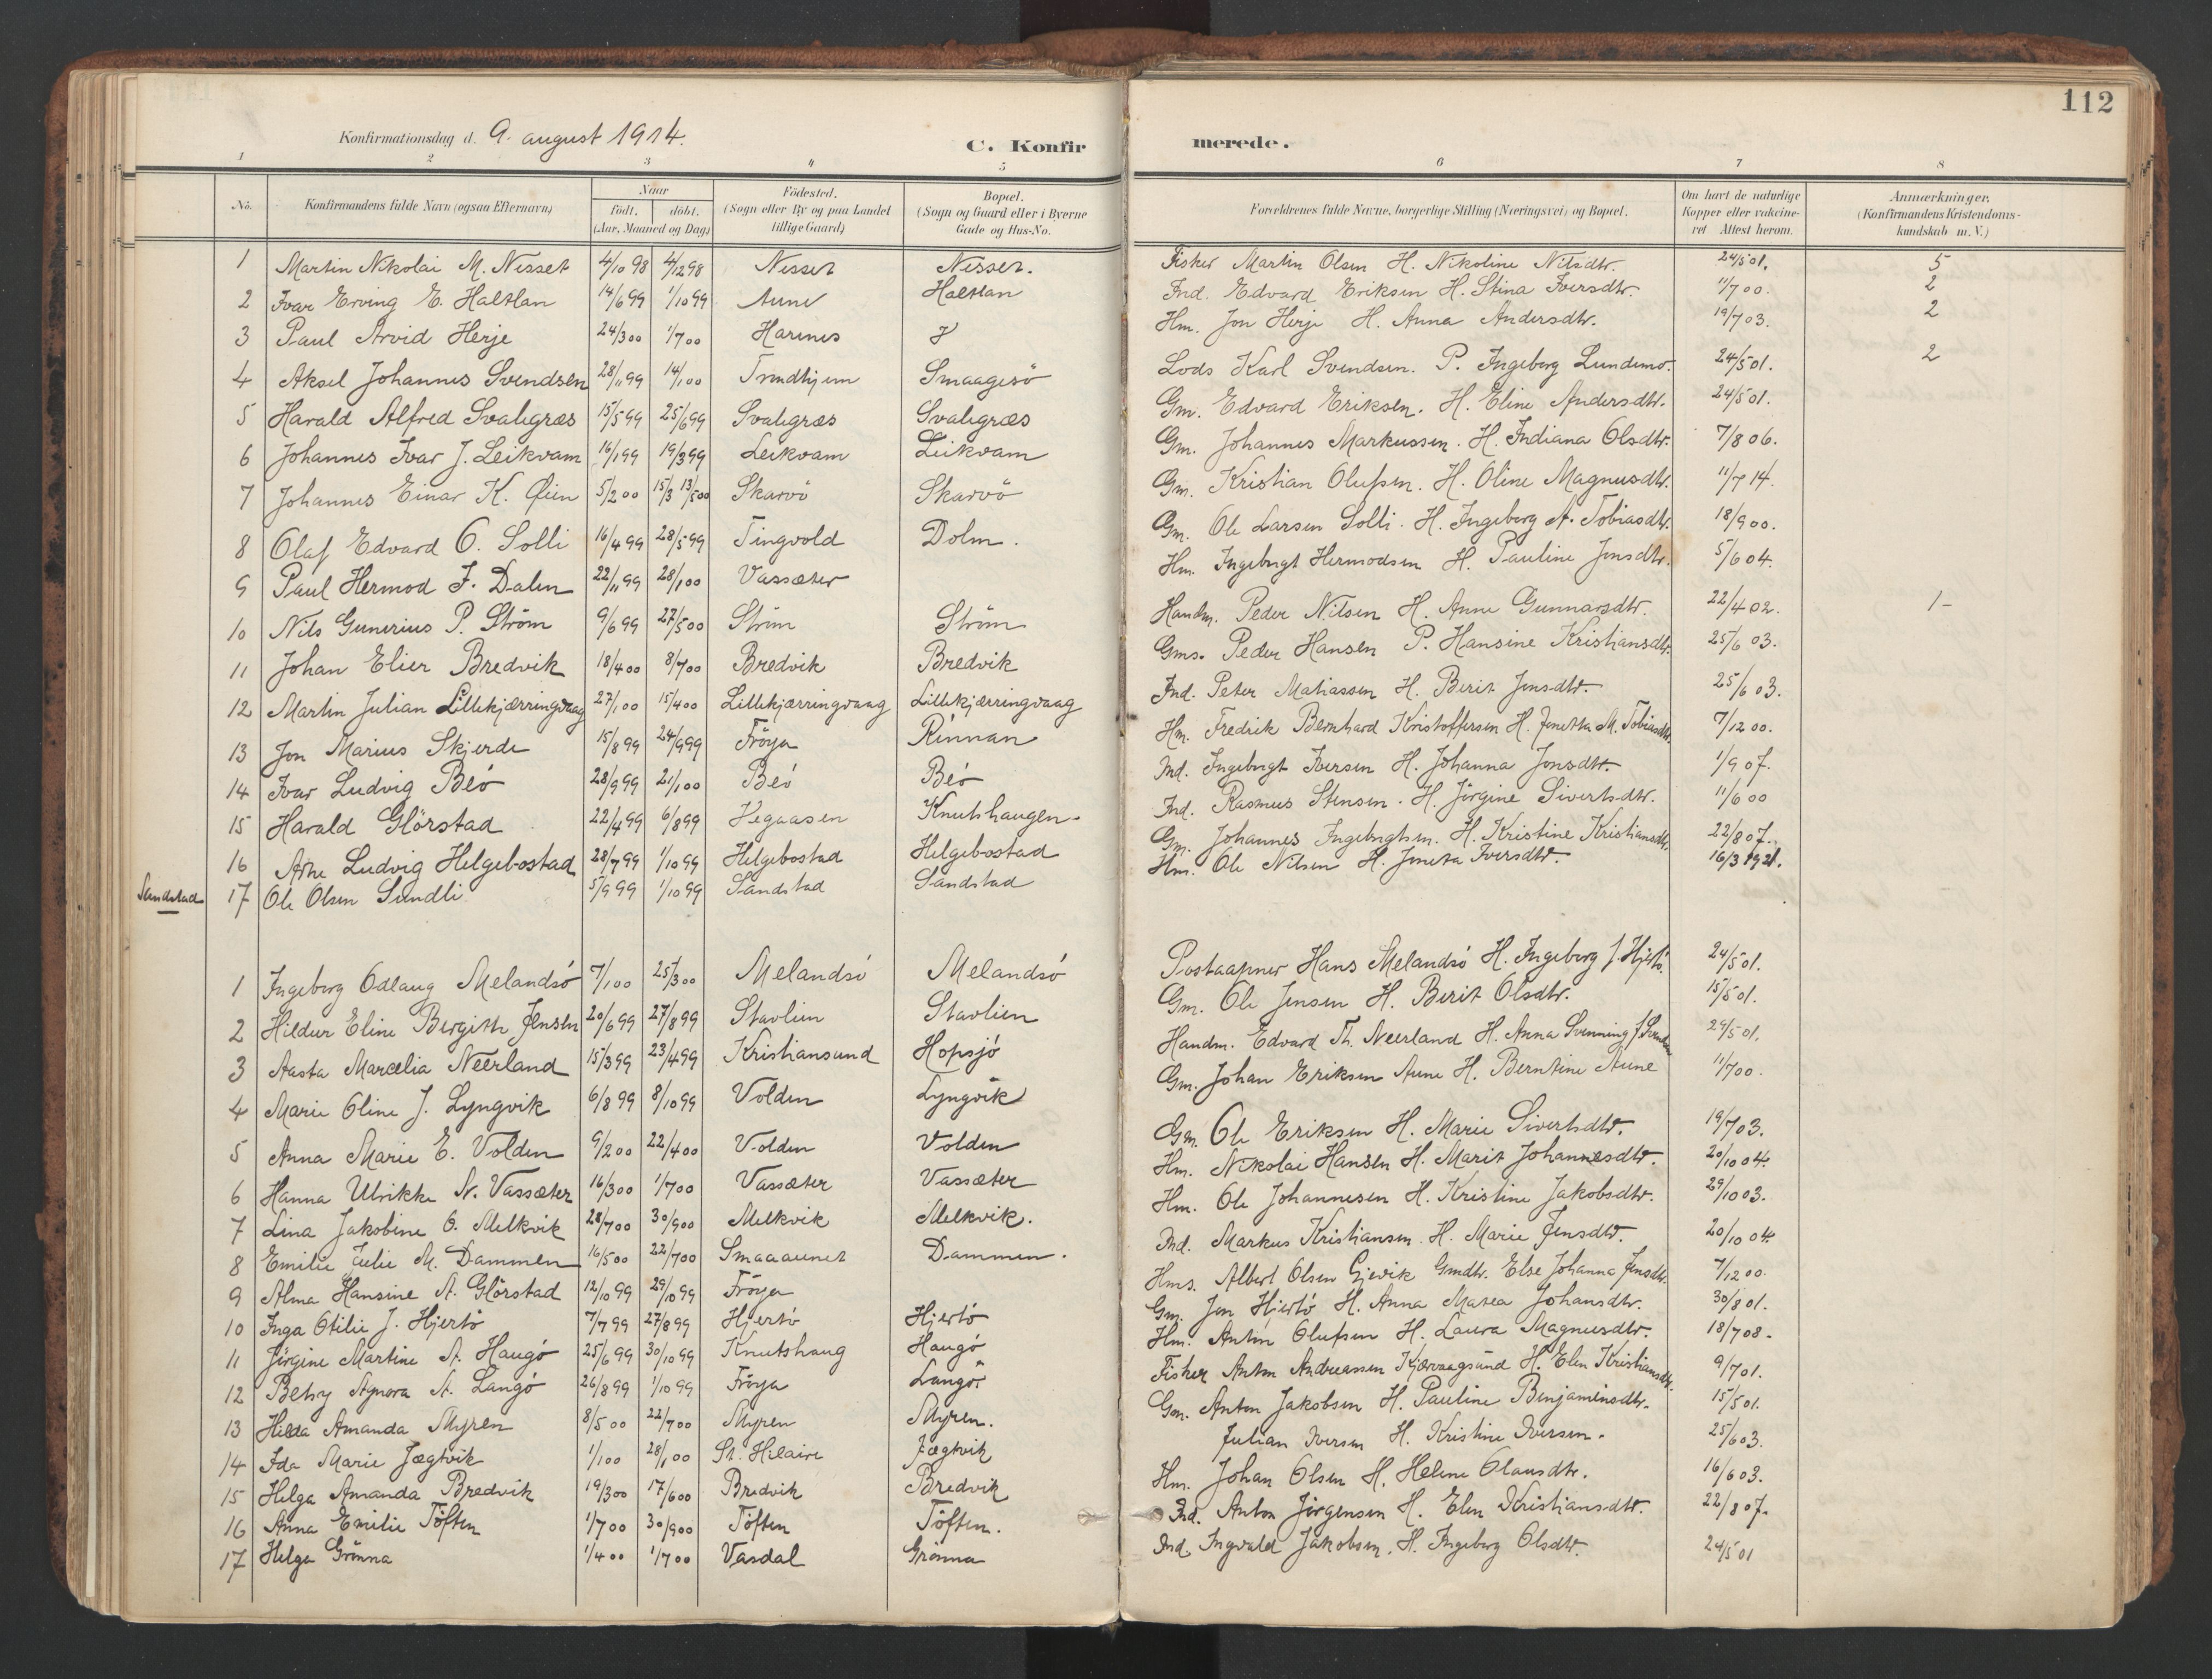 112
Konfirmationsdag d. 9. august 1914.
C. Konfirmerede.
1 2 3 4 5 6 7 8
No. Konfirmandens fulde Navn (ogsaa Efternavn) Naar födt. döbt. (Aar, Maaned og Dag) Födested. (Sogn eller By og paa Landet tillige Gaard) Bopæl. (Sogn og Gaard eller i Byerne Gade og Hus-No. Forældrenes fulde Navne, borgerlige Stilling (Næringsvei) og Bopæl. Om havt de naturlige Kopper eller vakcineret Attest herom. Anmærkninger. (Konfirmandens Kristendomskundskab m. V.)
1 Martin Nikolai M. Nesset 4/10 98 4/12 98 Nesset Nesset. Fisker Martin Olsen H. Nikoline Nilsdtr. 24/5 01. 5
2 Ivar Erving E. Haltlan 14/6 99 1/10 99 Aune Haltlan Ind. Edvard Eriksen H. Stina Iversdtr. 11/7 00. 2
3 Paul Arvid Herje 24/3 00 1/7 00 Harines Hm. Jon Herje H. Anna Andersdtr. 19/7 03. 2
4 Aksel Johannes Svendsen 28/11 99 14/1 00 Trondhjem Smaagesö Lods Karl Svendsen. P. Ingeborg Lundemo. 24/5 01. 2
5 Harald Alfred Svaligræs 15/5 99 25/6 99 Svaligræs Svaligræs Gm. Edvard Eriksen. H. Eline Andersdtr. 24/5 01.
6 Johannes Ivar J. Leikvam 16/1 99 19/3 99 Leikvam Leikvam Gm. Johannes Markussen. H. Indiana Olsdtr. 7/8 06.
7 Johannes Einar K. Øien 5/2 00 15/3 13/5 00 Skarvö Skarvö Gm. Kristian Olufsen. H. Oline Magnusdtr. 11/7 14.
8 Olaf Edvard O. Solli 16/4 99 28/5 99 Tingvold Dolm. Gm. Ole Larsen Solli. H. Ingeborg A. Tobiasdtr. 18/9 00.
9 Paul Hermod I. Dalen 22/11 99 28/1 00 Vassæter Hm. Ingebrigt Hermodsen H. Pauline Jonsdtr. 5/6 04.
10 Nils Gunerius P. Ström 9/6 99 27/5 00 Ström Ström Handm. Peder Nilsen H. Anne Gunnarsdtr. 22/4 02. 1-
11 Johan Elier Bredvik 18/4 00 8/7 00 Bredvik Bredvik Gms. Peder Hansen P. Hansine Kristiansdtr. 25/6 03.
12 Martin Julian Lillekjærringvaag 27/1 00 15/4 00 Lillekjærringvaag Lillekjærringvaag Ind. Peter Matiassen H. Berit Jensdtr. 25/6 03.
13 Jon Marius Skjerde 15/8 99 24/9 99 Fröya Rinnan Hm. Fredrik Bernhard Kristoffersen H. Jenetta M. Tobiasdtr. 7/12 00.
14 Ivar Ludvig Beö 28/9 99 21/1 00 Beö Beö Ind. Ingebrigt Iversen H. Johanna Jonsdtr. 1/9 07.
15 Harald Glörstad 22/4 99 6/8 99 Vegaasen Knutshaugen. Ind. Rasmus Stensen. H. Jörgine Sivertsdtr. 11/6 00
16 Arne Ludvig Helgebostad 28/7 99 1/10 99 Helgebostad Helgebostad Gm. Johannes Ingebrigtsen. H. Kristine Kristiansdtr. 22/8 07.
Sandstad 17 Ole Olsen Sundli 5/9 99 1/10 99 Sandstad Sandstad Hm. Ole Nilsen H. Jeneta Iversdtr. 16/3 1921.
1 Ingeborg Odlaug Melandsö 7/1 00 25/3 00 Melandsö Melandsö Postaapner Hans Melandsö H. Ingeborg f. Hjertö. 24/5 01.
2 Hildur Eline Bergithe Jensen 20/6 99 27/8 99 Stavlien Stavlien Gm. Ole Jensen H. Berit Olsdtr. 15/5 01.
3 Aasta Marcelia Neerland 15/3 99 23/4 99 Kristiansund Hopsjö Handm. Edvard Th. Neerland H. Anna Svenning 29/5 01.
4 Marie Oline J. Lyngvik 6/8 99 8/10 99 Volden Lyngvik Gm. Johan Eriksen Aune H. Berntine Aune 11/7 00.
5 Anna Marie E. Volden 9/2 00 22/4 00 Volden Volden Gm. Ole Eriksen H. Marie Sivertsdtr. 19/7 03.
6 Hanna Ulrikke N. Vassæter 16/3 00 1/7 00 Vassæter Vassæter Hm. Nikolai Hansen H. Marit Johannesdtr. 20/10 04.
7 Lina Jakobine O. Melkvik 28/7 00 30/9 00 Melkvik Melkvik. Hm. Ole Johannesen H. Kristine Jakobsdtr. 29/10 03.
8 Emilie Julie M. Dammen 16/5 00 22/7 00 Smaaaunet Dammen. Ind. Markus Kristiansen. H. Marie Jensdtr. 20/10 04.
9 Alma Hansine A. Glörstad 12/10 99 29/10 99 Fröya Hms. Albert Olsen Gjevik Gmdtr. Else Johanna Jensdtr. 7/12 00.
10 Inga Otilie J. Hjertö 7/7 99 27/8 99 Hjertö Hjertö Gm. Jon Hjertö H. Anna Matea Johansdtr. 30/8 01.
11 Jörgine Martine A. Haugö 25/6 99 30/10 99 Knutshaug Haugö Hm. Anton Olufsen H. Laura Magnusdtr. 18/7 08.
12 Betsy Agnora A. Langö 26/8 99 1/10 99 Fröya Langö. Fisker Anton Andreassen Kjærvaagsund H. Elen Kristiansdtr. 9/7 01.
13 Hilda Amanda Myren 8/5 00 22/7 00 Myren Myren. Gm. Anton Jakobsen H. Pauline Benjaminsdtr. 15/5 01.
14 Ida Marie Jægtvik 1/1 00 28/1 00 St. Hilaire Jægtvik Julian Iversen H. Kristine Iversen. 25/6 03.
15 Helga Amanda Bredvik 19/3 00 17/6 00 Bredvik Bredvik Hm. Johan Olsen H. Helene Olausdtr. 16/6 03.
16 Anna Emilie Töften 1/7 00 30/9 00 Töften Töften. Ind. Anton Jörgensen H. Elen Kristiansdtr. 22/8 07.
17 Helga Grönna 1/4 00 1/7 00 Vasdal Grönna Ind. Ingvald Jakobsen. H. Ingeborg Olsdtr. 24/5 01